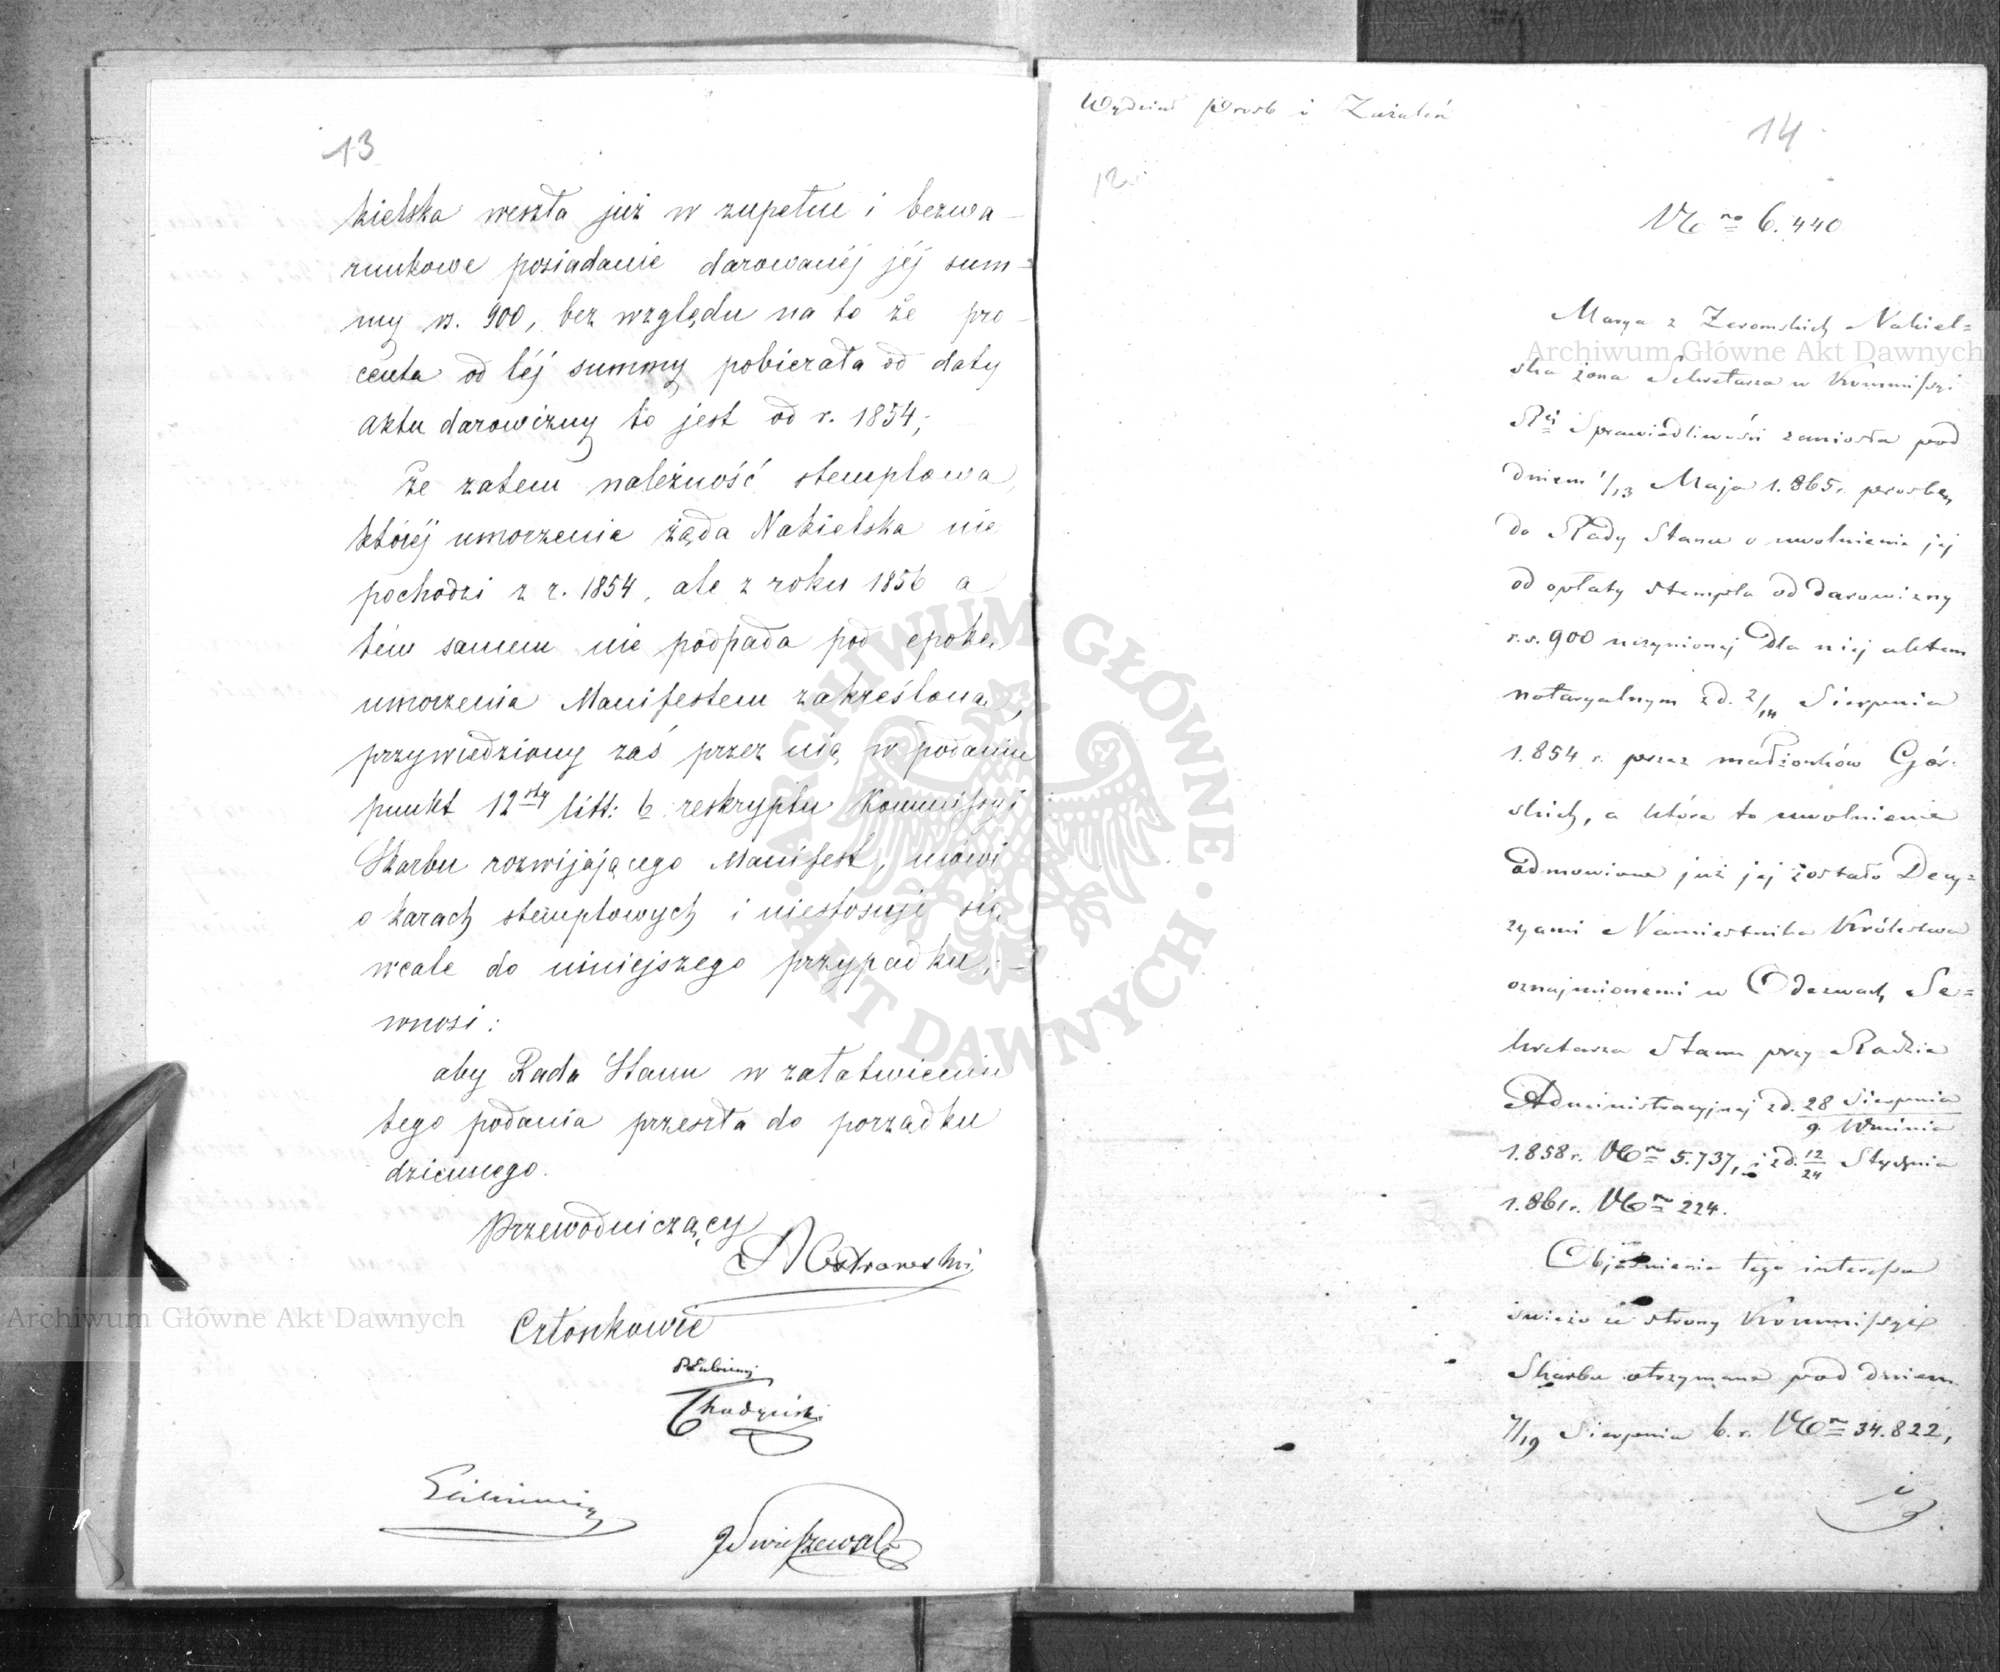 13
kielska weszła już w zupełne i bezwa-
runkowe posiadanie darowanéj jéj sum-
my rs. 900, bez względu na to że pro-
centa od téj summy pobierała od daty
aktu darowizny to jest od r. 1854;
Że zatem należność stemplowa,
któréj umorzenia żąda Nakielska nie
pochodzi z r. 1854, ale z roku 1856 a
tém samem nie podpada pod epokę,
umorzenia Manifestem zakreśloną,
przywiedziony zaś przez nią w podaniu
punkt 12sty litt: b reskryptu Kommissyi
Skarbu rozwijającego Manifest, mówi
o karach stemplowych i niestosuje się
wcale do niniejszego przypadku; -
wnosi:
aby Rada Stanu w załatwieniu
tego podania przeszła do porządku
dziennego.
Przewodniczący
A Ostrowski
Członkowie
Wydział Próśb i Zażaleń
14
12.
No 6.440
Marya z Żeromskich Nakiel=
ska żona Sekretarza w Kommissyi
Rej Sprawiedliwości zaniosła pod
dniem 1/13 Maja 1.865 r. prośbę,
do Rady Stanu o uwolnienie jej
od opłaty stempla od darowizny
r.s. 900 uczynionej dla niej aktem
notaryalnym z d. 2/14 Sierpnia
1.854 r. przez małżonków Gór-
skich, a które to uwolnienie
odmówione już jej zostało Decy=
zyami Namiestnika Królestwa
oznajmionemi w Odezwach Se=
kretarza Stanu przy Radzie
Administracyjnej z d. 28 Sierpnia
9 Września
1.858 r. No 5.737, i z d. 12/24 Stycznia
1.861 r. No 224.
Objaśnienie tego interessu
świeżo ze strony Kommissyi
Skarbu otrzymane pod dniem
7/19 Sierpnia b. r. No 34.822,
ARCHIWUM GŁÓWNE · AKT DAWNYCH ·
Archiwum Główne Akt Dawnych
Archiwum Główne Akt Dawnych